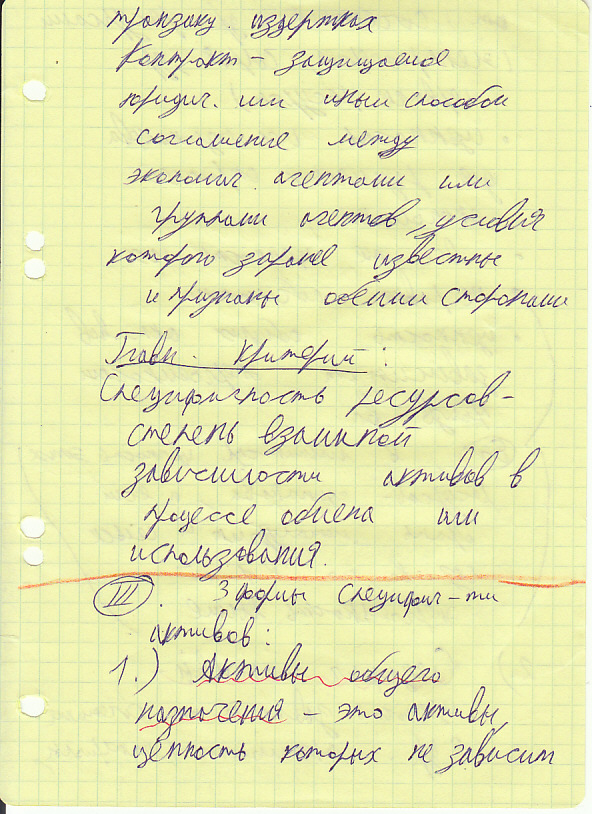 транзакц. издержках
Контракт – защищаемое
юридич. или иным способом
соглашение между
экономич. агентами или
группами агентов, условия
которого заранее известны
и признаны обеими сторонами
Главн. критерий:
Специфичность ресурсов –
степень взаимной
зависимости активов в
процессе обмена или
использования.
III. 3 формы специфич-ти
активов:
1.) Активы общего
назначения – это активы,
ценность которых не зависит